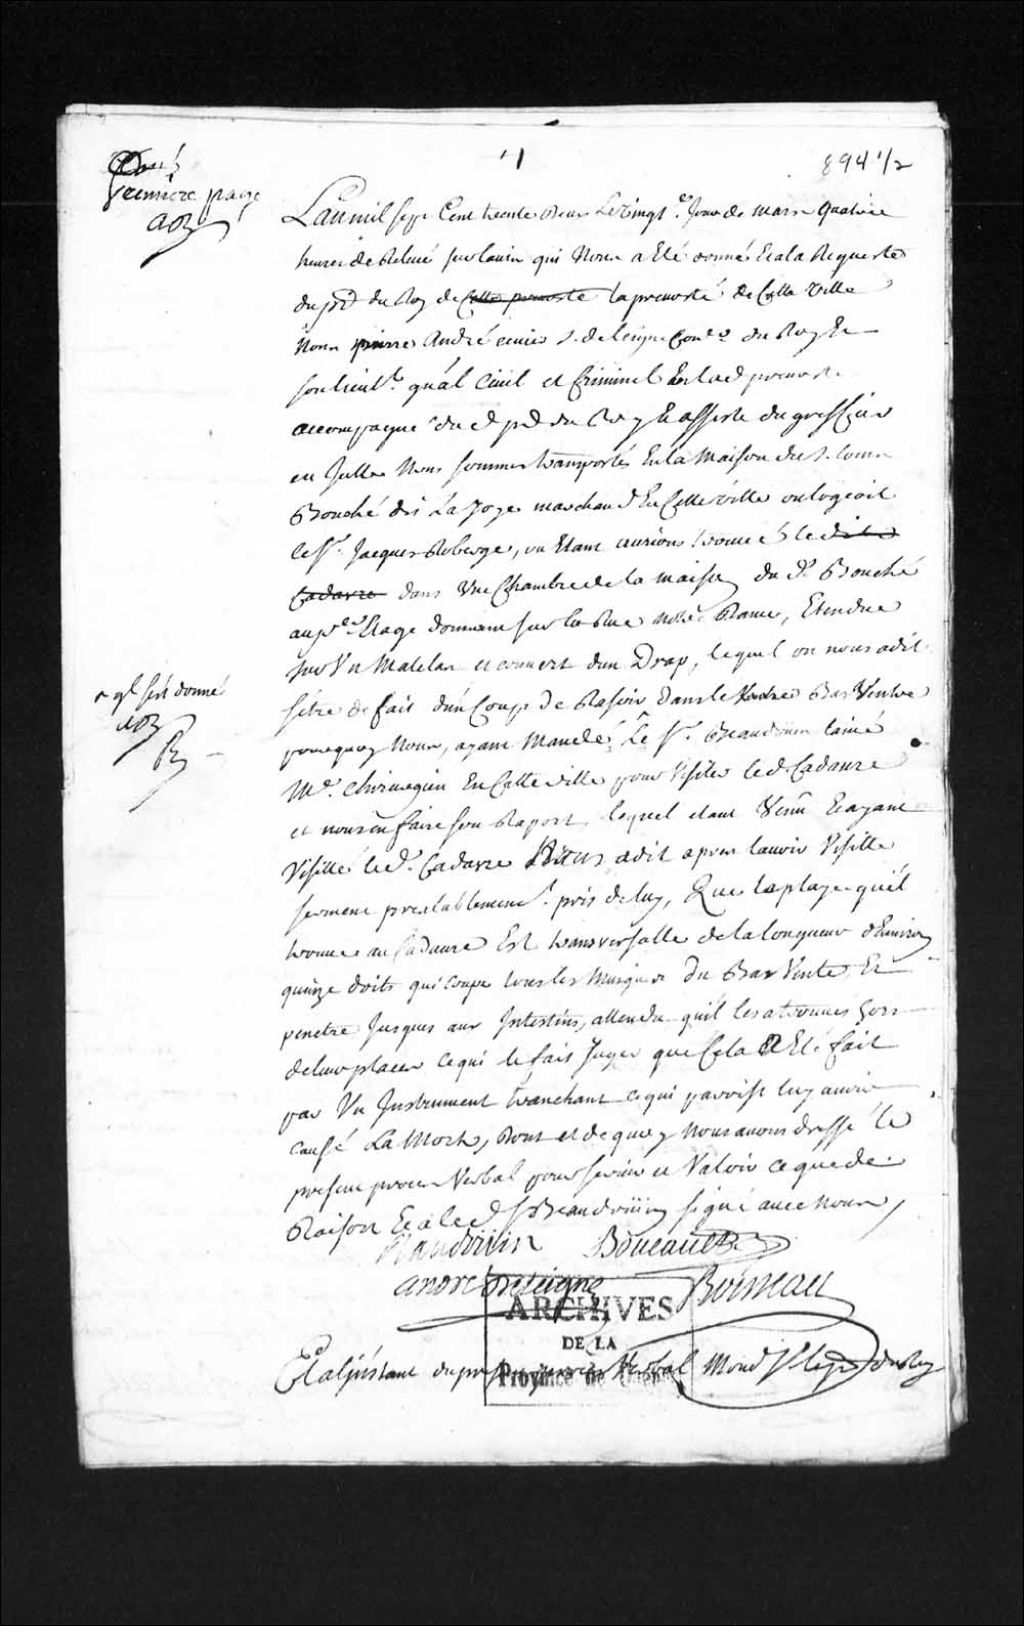 1
894 1/2
premiere page
L'an mil sept Cent trente deux Le Vingt e. Jour de mars Quatre
heures de Relevé sur lavis qui Nous a Eté donné Et a la Requeste
du pr. du Roy de Cette prevosté la prevosté de Cette ville
Nous pierre André ecuier s. de leigne Con.er du Roy Et
son lieut.t g'nal Civil et Criminel En lad prevosté
accompagné du d pr du Roy Et assisté du greffier
en Jcelle Nous sommes transportés En la Maison du S.
Bouché dit La Joye marchand En Cette ville ou logeoit
le Sr. Jacques Roberge, ou Etant aurions trouvé le dit
Cadavre dans Une Chambre de la maison du d. Bouché
au p.er Etage donnant sur la Rue notre Dame, Etendue
sur Un Matelas et couvert dun Drap, lequel on nous a dit
sêtre de fait d'un Coup De Rasoir dans le Ventre Bas Ventre
^ ql sest donné
pourquoy Nous, ayant Mandé Le Sr. Beaudoüin lainé
Me. chirurgien En Cette ville pour Visiter led. Cadavre
et nous en faire son Raport, lequel etant Venû Et ayant
Visitté led. Cadavre Nous a dit apres lavoir Visitté
serment prealablement pris de luy, Que la playe quil
trouve au Cadavre Est transversalle de la longueur d'Environ
quinze doits qui coupe tous les Muscles du Bas Ventre Et
penetre Jusques aux Jntestins, attendu quil les a trouvés hors
de leur places ce qui le fait Juger que Cela A Eté fait
par Un Jnstrument tranchant ce qui paroist luy avoir
causé La Mort, Dont et de quoy Nous avons dressé le
present procez Verbal pour servir et Valoir ce que de
Raison Et a led S Beaudoüin signé avec nous
Baudoüin Boucault
andre de leigne Boisseau
ARCHIVES
DE LA
Province de Québec
Et a l'instant du present procez Verbal Mond Sr le pr du Roy